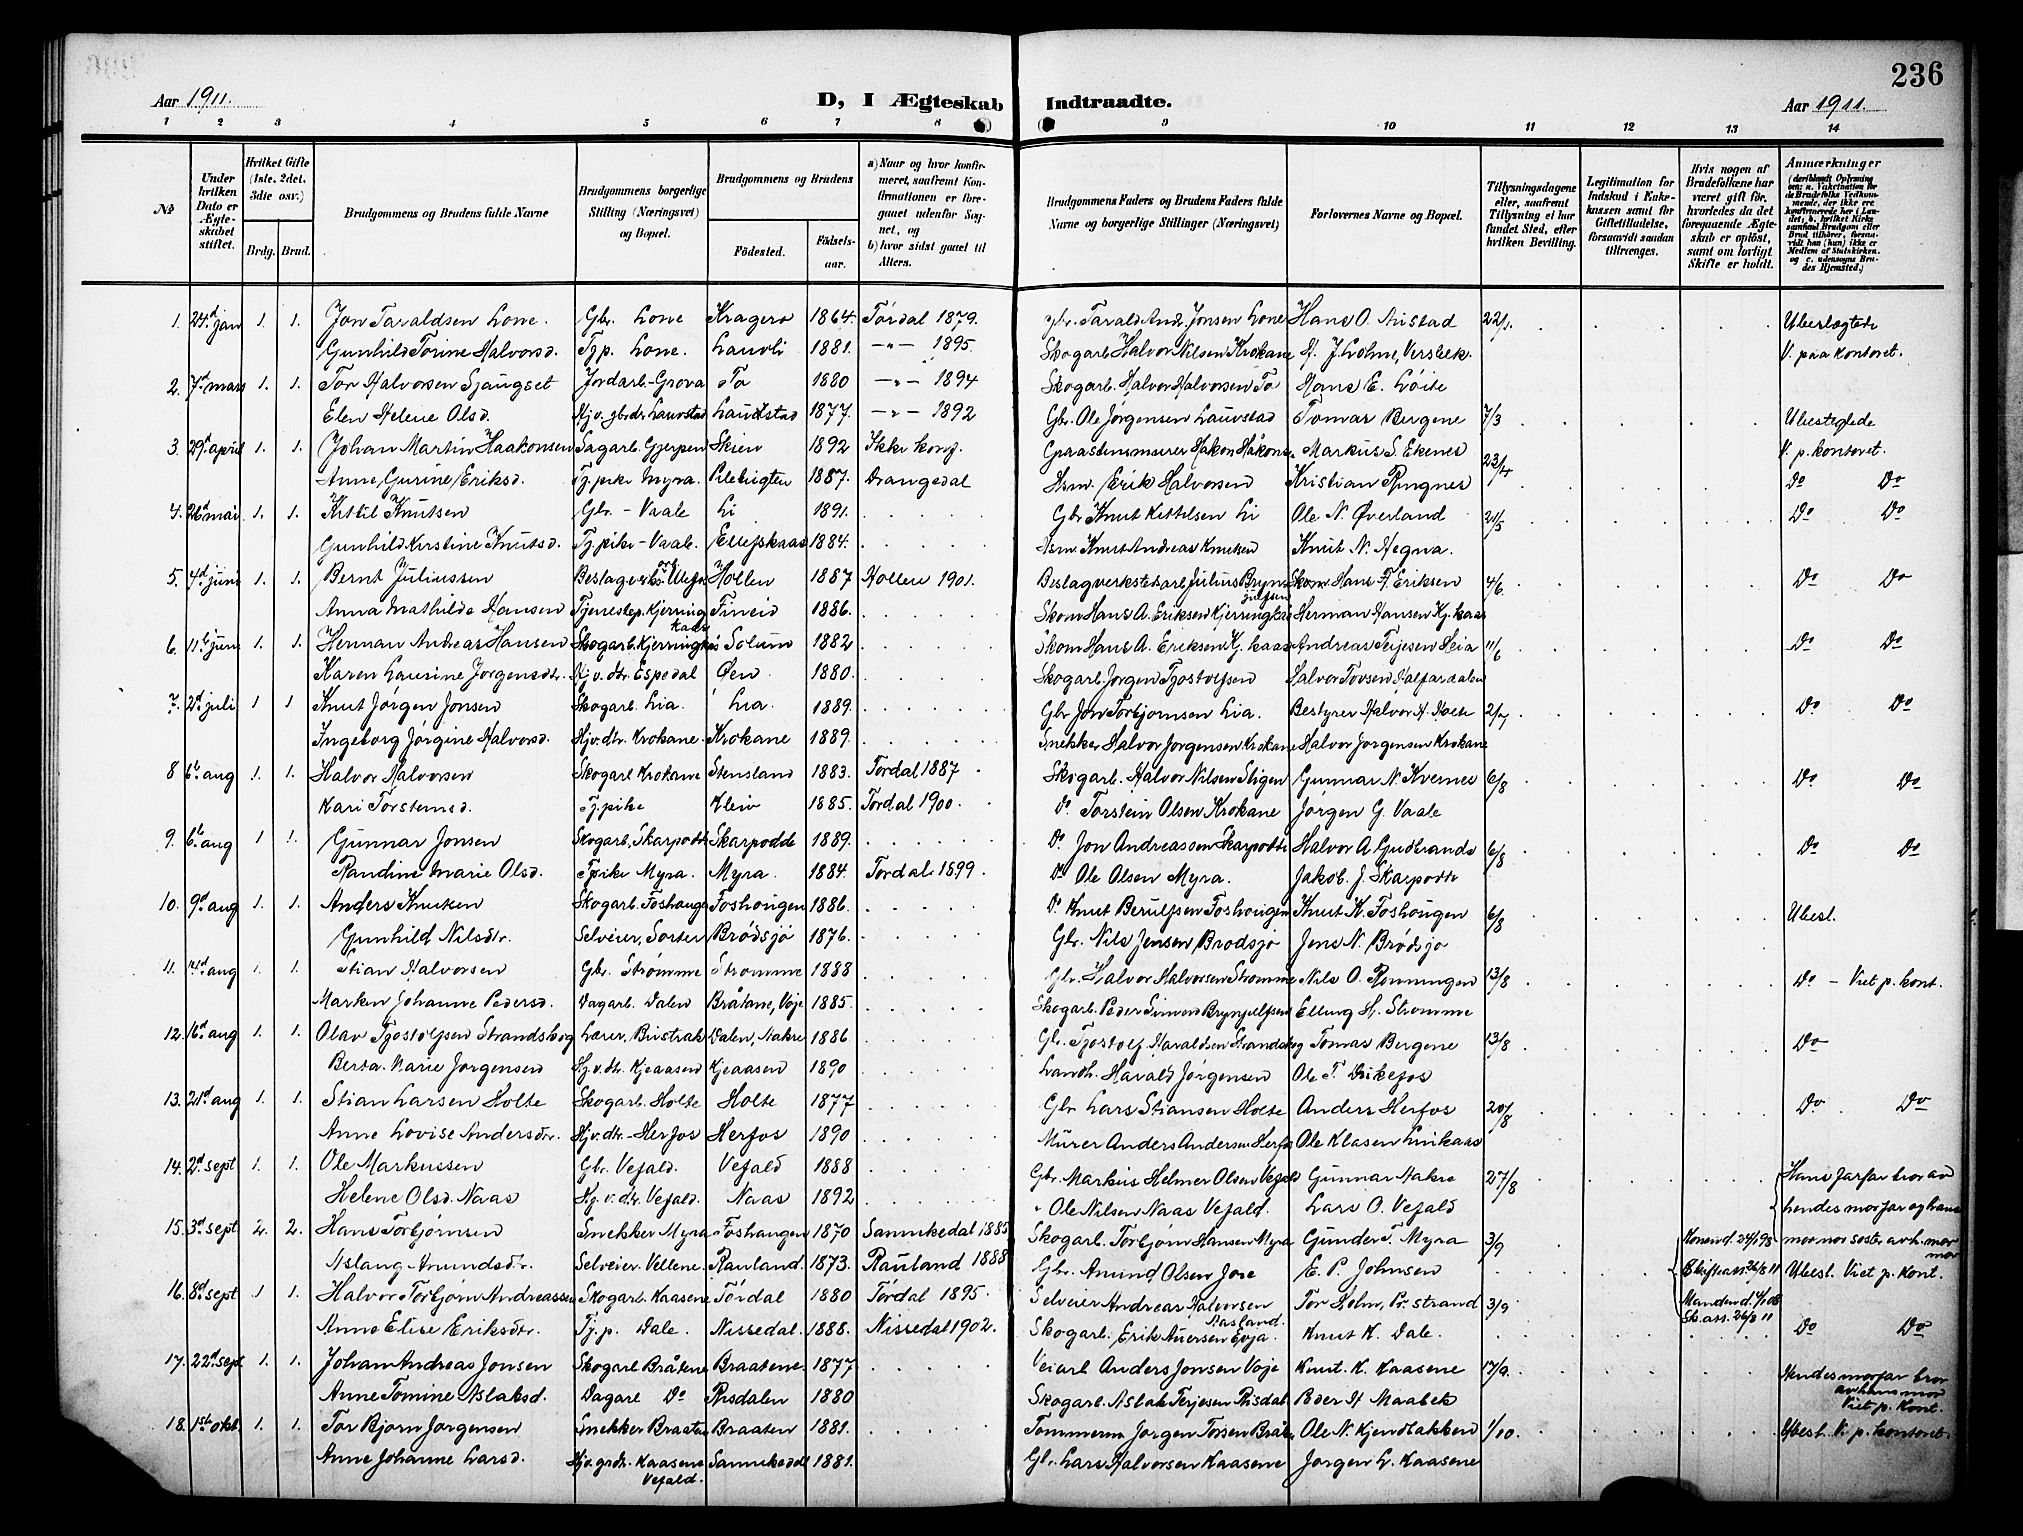 236
Aar 1911. D, I Ægteskab Indtraadte. Aar 1911.
1 2 3 4 5 6 7 8 9 10 11 12 13 14
№
Under hvilken Dato er Ægteskabet stiftet.
Hvilket Gifte (1ste, 2det, 3die osv.)
Brdg. Brud.
Brudgommens og Brudens fulde Navne
Brudgommens borgerlige Stilling (Næringsvei) og Bopæl.
Brudgommens og Brudens
Födested. Födselsaar.
a) Naar og hvor konfirmeret, saafremt Konfirmationen er foregaaet udenfor Sognet, og
b) hvor sidst gaaet til Alters.
Brudgommens Faders og Brudens Faders fulde Navne og borgerlige Stillinger (Næringsvei)
Forlovernes Navne og Bopæl.
Tillysningsdagene eller, saafremt Tillysning ei har fundet Sted, efter hvilken Bevilling.
Legitimation for Indskud i Enkekassen samt for Giftetilladelse, forsaavidt saadan tiltrænges.
Hvis nogen af Brudefolkene har været gift för, hvorledes da det foregaaende Ægteskab er oplöst, samt om lovligt Skifte er holdt.
Anmærkninger (deriblandt Oplysning om: a. Vakcination for de Brudefolks Vedkommende, der ikke ere konfirmerede her i Landet; b. hvilket Kirkesamfund Brudgom eller Brud tilhörer, forsaavidt han (hun) ikke er Medlem af Statskirken, og c. udensogns Brudes Hjemsted.)
1. 24d jan 1. 1. Jon Taraldsen Lone. Gbr. Lone Kragerø 1864. Tørdal 1879. Gbr. Tarald Andr. Jonsen Lone Hans O. Austad 22/1. Ubeslegtede
Gunhild Torine Halvorsd. Tj.p. Lone. Lauvli 1881. —"— 1895. Skogarb. Halvor Nilsen Krokane H. J. Lohne, Versbek. V. paa kontoret.
2. 7d mars 1. 1. Tor Halvorsen Sjaugset Jordarb. Grova To 1880 —"— 1894 Skogarb. Halvor Halvorsen To Hans E. Löite
Elen Helene Olsd. Hj.v. gbrdr. Lauvstad Lauvstad 1877. —"— 1892 Gbr. Ole Jørgensen Lauvstad Tomas Bergene 7/3 Ubesleglede
3. 29d april 1. 1. Johan Martin Haakonsen Sagarb. Gjerpen Skien 1892 Ikke konf. Graastensmurer Håkon Håkons. Markus S. Ekenes 23/4 V. p. kontoret.
Anne Gurine Eriksd. Tj.pike Myra. 1887. Drangedal Hsm. Erik Halvorsen Kristian Ringnes Do Do
4. 26d mai 1. 1. Kittil Knutsen Gbr. - Vaale Li 1891. Gbr Knut Kittelsen Li Ole N. Øverland 21/5 Do Do
Gunhild Kirstine Knutsd. Tj.pike - Vaale. Ellefskaas 1884. Hsm. Knut Andreas Knutsen Knut N. Hegna.
5. 4d juni 1. 1. Bernt Juliussen Holten 1887 Hollen 1901. Beslagverkstedarb. Julius Brynjulfsen Skom. Hans F. Eriksen 4/6 Do Do
Anna Mathilde Hansen Tjenestep. Kjerringkaas Fineid 1886. Skom Hans A. Eriksen Kjerringkaas Herman Hansen Kj.kaas
6. 11te juni 1. 1. Herman Andreas Hansen Skogarb. Kjerringkås Solum 1882 Skom Hans A. Eriksen Kj. kaas Andreas Terjesen Heia 11/6 Do Do
Karen Laurine Jørgensdtr. Hj.v. dtr. Espedal Øen 1880. Skogarb. Jørgen Tjostolfsen Halvor Tovsen
7. 2d juli 1 1 Knut Jørgen Jonsen Skogarb. Lia. Lia. 1889. Gbr Jon Torbjørnsen Lia. Bestyrer Halvor H. Holte 2/7 Do Do
Ingeborg Jørgine Halvorsd. Hj.v.dtr. Krokane. Krokane 1889. Snekker Halvor Jørgensen Krokane Halvor Jørgensen Krokane
8 6te aug 1. 1. Halvor Halvorsen Skogarb Krokane Stensland 1883. Tørdal 1887 Skogarb. Halvor Nilsen Stigen Gunnar N. Kvernes 6/8 Do Do
Kari Torsteinsd. Tj.pike Kleiv 1885. Tørdal 1900. Do Torstein Olsen Krokane Jörgen G. Vaale
9. 6te aug 1 1. Gunnar Jonsen Skogarb. Skarpodde Skarpodde 1889. Do Jon Andreassen Skarpodde Halvor A Gudbrands 6/8 Do Do
Randine Marie Olsd. Tj.pike Myra. Myra. 1884. Tørdal. 1899. Do Ole Olsen Myra. Jakob. J. Skarpodde
10. 9d aug 1. 1. Anders Knutsen Skogarb. Foshaugen Foshougen 1886. Do Knut Berulfsen Foshougen Knut K. Foshougen 6/8 Ubesl.
Gunhild Nilsdtr. Selveier, Sorter Brödsjö 1876. Gbr. Nils Jensen Brødsjø Jens N. Brødsjø
11. 14d aug 1. 1. Stian Halvorsen Gbr. Strømme Strømme 1888 Gbr. Halvor Halvorsen Strømme Nils O. Rønningen 13/8 Do - Viet p. kont.
Maren Johanne Pedersd. Dagarb. Dalen Bråtane, Voje 1885. Skogarb. Peder Simond Brynjulfsen Elling H. Strømme
12. 16d aug 1. 1. Olav Tjostolfsen Strandskog Lærer, Bustrak Dalen, Nakre 1886 Gbr. Tjostolf Haraldsen Strandskog Tomas Bergene 13/8 Do
Berta Marie Jørgensen Hj.v.dtr. Kjeaasen Kjeaasen 1890 Landh. Harald Jørgensen Ole T. Drikefos
13. 21d aug 1. 1. Stian Larsen Holte Skogarb. Holte Holte 1877 Gbr Lars Stiansen Holte Anders Herfos 20/8 Do Do
Anne Lovise Andersdtr. Hj.v.dtr. - Herfos Herfos 1890 Mürer Anders Andersen Herfos Ole Klasen Linkaas
14. 2d sept 1. 1. Ole Markussen Gbr. Vefald. Vefald 1888 Gbr. Markus Helmer Olsen Vefald Gunnar Nakre 27/8 Hans farfar bror av
Helene Olsd. Naas Hj.v.dtr. Vefald. Naas 1892 " Ole Nilsen Naas Vefald. Lars O. Vefald hendes morfar og hans
15. 3d sept 2. 2. Hans Torbjørnsen Snekker Myra Foshaugen 1870 Sannikedal 1885 Skogarb. Torbjørn Hansen Myra Gunder T. Myra 3/9 Konen d. 24/1 98 mormor søster av h. mor mor
Aslaug Amundsdtr. Selveier. Vellene. Rauland. 1873. Rauland 1888 Gbr. Amund Olsen Jore E. P. Johnsen Skifteatt. 26/8 11 Ubesl. Viet p. Kont.
16. 8d sept 1 1. Halvor Torbjørn Andreassen Skogarb. Kaasene Tördal 1880 Tördal 1895. Selveier Andreas Halvorsen Aasland. Tor Holm, Pr.strand 3/9 Manden d. 4/1 08
Anne Elise Eriksdtr. Tj.p. Dale. Nissedal. 1888. Nissedal 1902. Skogarb. Erik Auersen Eoja. Knut K. Dale. Sk.att. 26/8 11 Do Do
17. 22d sept. 1. 1. Johan Andreas Jonsen Skogarb Bråtene Braatene. 1877 Veiarb Anders Jonsen Voje Knut. K. Kaasene 17/9. Hendes morfar bror
Anne Tomine Aslaksd. Dagarb Do Risdalen 1880 Skogarb. Aslak Terjesen Risdal Peder H Maabek av hans mor Viet p. Kont.
18. 1ste okt. 1. 1. Tor Bjørn Jørgensen Snekker Braaten Braaten 1881. Tømmerm. Jørgen Torsen Bråten Ole N. Kjendbakken 1/10. Ubesl. V. p. kontoret.
Anne Johanne Larsd. Hj.v. grdtr. Kaasene Vefald. Sannikedal 1881. Gbr. Lars Halvorsen Kaasene Jørgen L. Kaasene